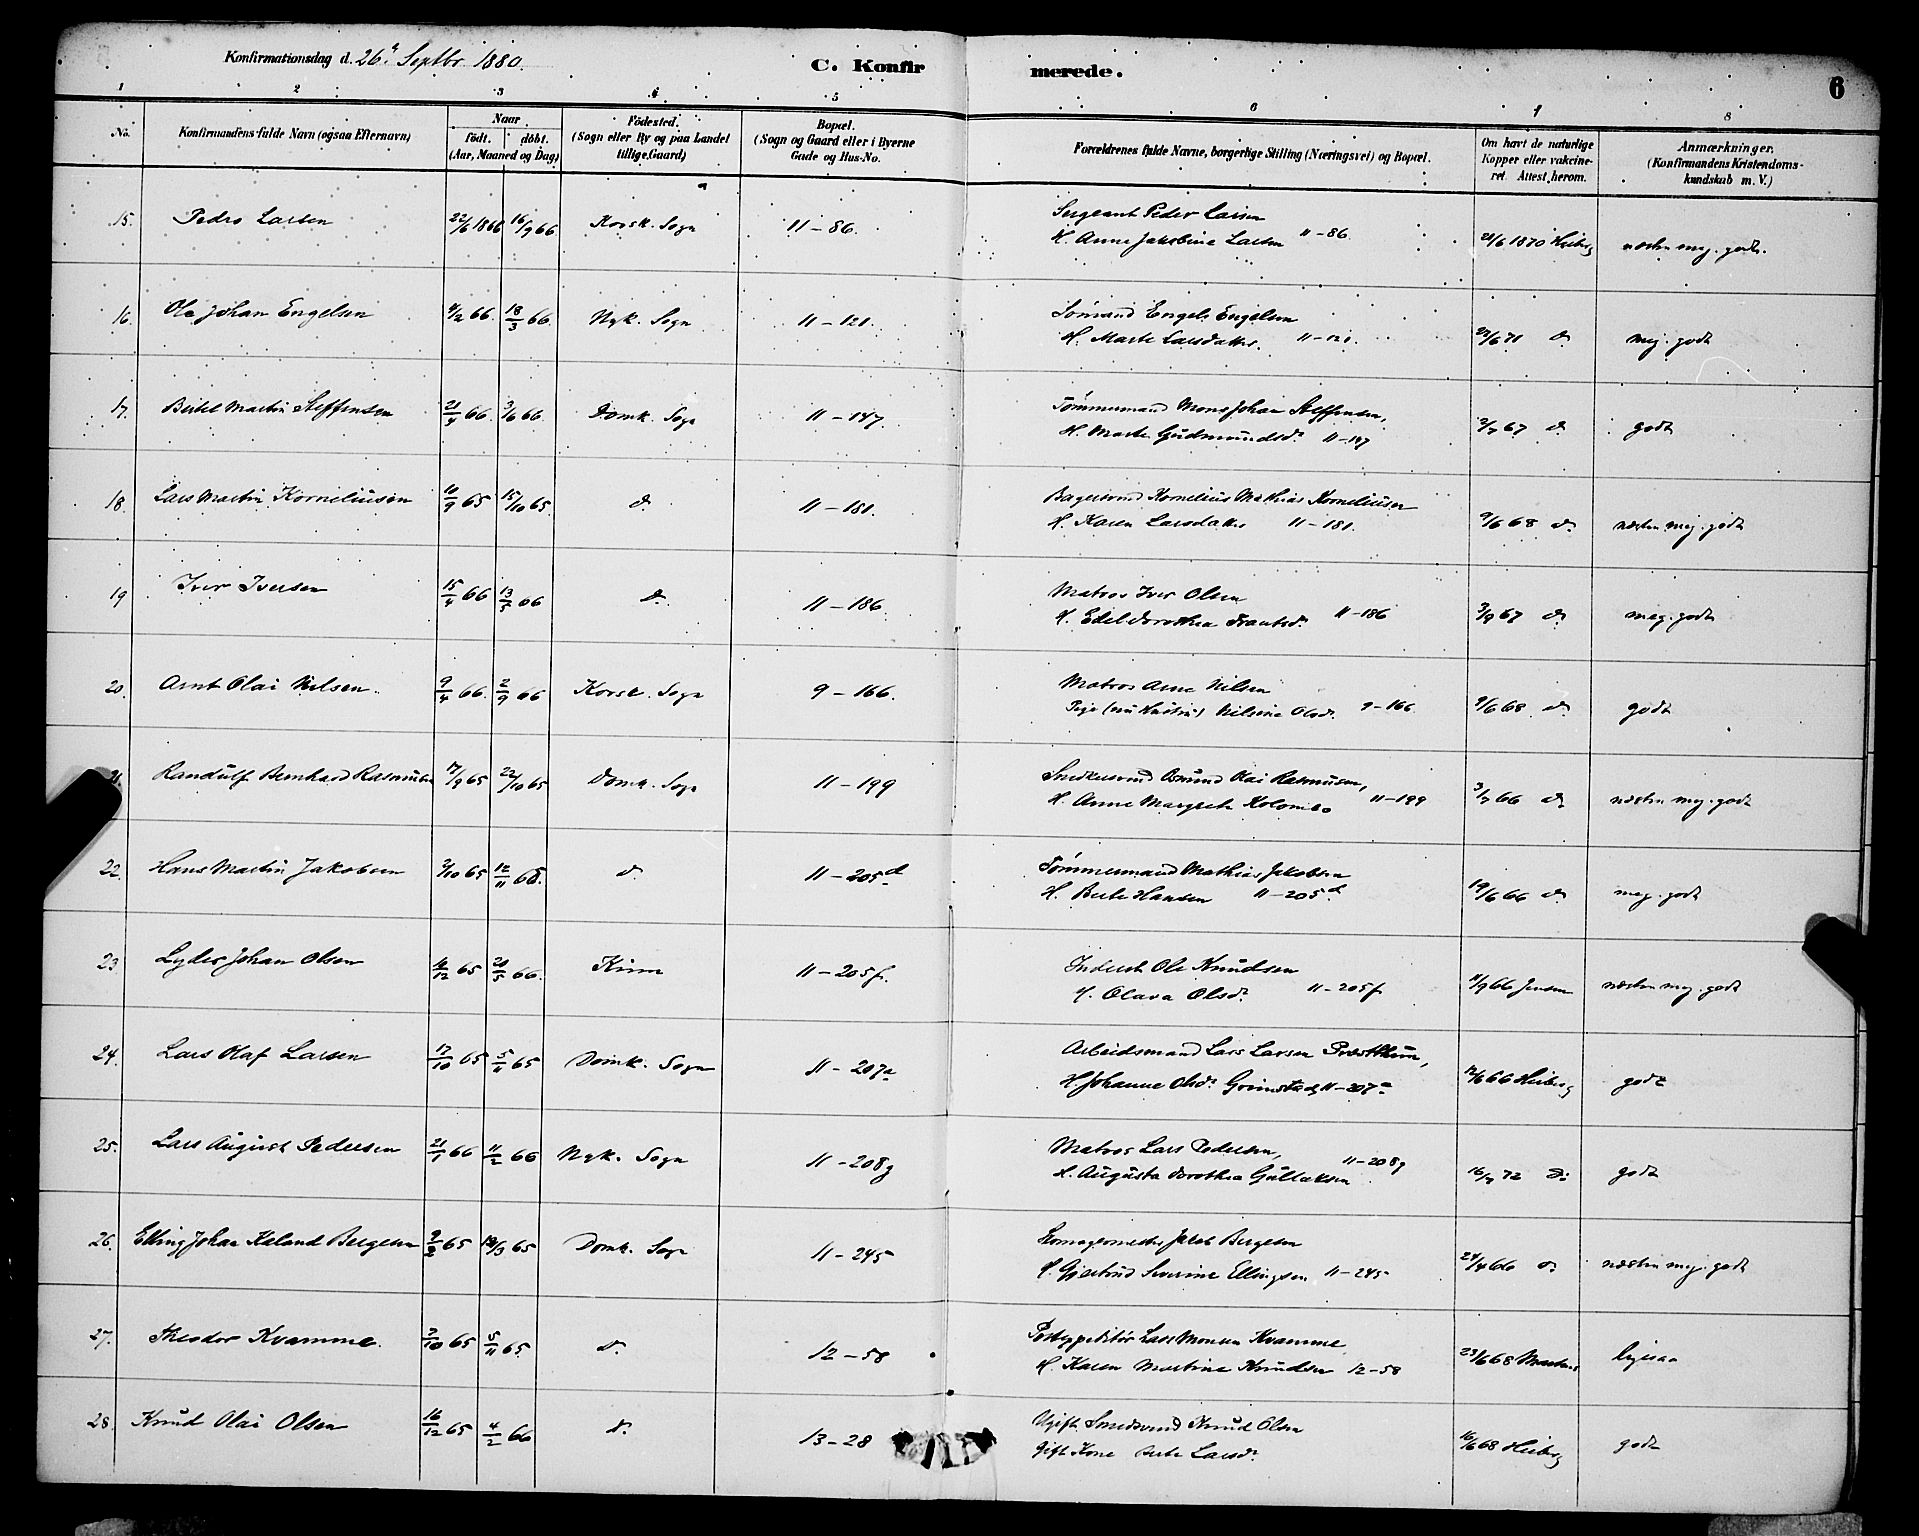 Konfirmationsdag d. 26de Septbr 1880.
C. Konfirmerede.
6
1 2 3 4 5 6 7 8
No. Konfirmandens fulde Navn (ogsaa Efternavn) Naar födt. döbt. (Aar, Maaned og Dag) Födested. (Sogn eller By og paa Landet tillige Gaard) Bopæl. (Sogn og Gaard eller i Byerne Gade og Hus-No. Forældrenes fulde Navne, borgerlige Stilling (Næringsvei) og Bopæl. Om havt de naturlige Kopper eller vakcineret. Attest herom. Anmærkninger. (Konfirmandens Kristendomskundskab m. V.)
15. Pedro Larsen 22/6 1866 16/9 66 Korsk. Sogn 11-86. Sergeant Peder Larsen
H. Anne Jakobine Larsen 11-86. 21/6 1870 Heiberg næsten meg. godt.
16. Ole Johan Engelsen 4/2 66. 18/3 66. Nyk. Sogn 11-121. Sömand Engels Engelsen
H. Marte Larsdatter. 11-121. 22/6 71 do meg. godt
17. Bertel Martin Steffensen 21/4 66. 3/6 66. Domk. Sogn 11-147. Tömmermand Mons Johan Steffensen,
H. Marte Gudmundsdr 11-147 2/7 67 do godt
18. Lars Martin Korneliusen 10/9 65 15/10 65. do 11-181. Bagersvend Kornelius Mathias Korneliusen
H. Karen Larsdatter 11-181. 9/6 68 do næsten meg. godt
19 Iver Iversen 15/4 66 13/5 66 do 11-186. Matros Iver Olsen
H. Edel Dorothea Frantsdr 11-186 3/9 67 do meg. godt
20. Arnt Olai Nilsen. 9/4 66. 2/9 66 Korsk. Sogn 9-166. Matros Arne Nilsen
Pige (nu Hustru) Nilsine Olsdr. 9-166 9/6 68 do godt
21. Randulf Bernhard Rasmusen 17/9 65 22/10 65 Domk. Sogn 11-199 Snedkersvend Osmund Olai Rasmusen,
H. Anne Margrete 11-199 3/7 66 do næsten meg. godt
22. Hans Martin Jakobsen 2/10 65 12/11 65. do 11-205d Tömmermand Mathias Jakobsen
H. Berte Hansen 11-205d 19/6 66 do meg. godt
23. Lyder Johan Olsen 14/12 65 21/5 66. Kinn 11-205f. Inderst Ole Knudsen
H. Olava Olsdr 11-205f 11/9 66 Jensen næsten meg. godt
24. Lars Olaf Larsen 17/10 65 5/11 65 Domk. Sogn 11-207a Arbeidsmand Lars Larsen Præsthum,
H Johanne Olsdr Grimstad, 11-207a 12/6 66 Heiberg godt
25. Lars August Pedersen 21/1 66 11/2 66 Nyk. Sogn 11-208g Matros Lars Pedersen, 11-208g
H. Augusta Dorothea Gullaksen 16/7 72 Do godt
26. Elling Johan Kaland Bergesen 2/2 65 19/3 65 Domk. Sogn 11-245 Skomagermester Jakob Bergesen
H. Gjertrud Severine Ellingsen 11-245 24/4 66 do næsten meg. godt
27. Theodor Kvamme. 7/10 65 5/11 65. do 12-58 Postexpeditör Lars Monsen Kvamme
H. Karen Martine Knudsen 12-58 23/6 68 Martens ligesaa
28. Knud Olai Olsen 16/12 65 4/2 66 do 13-28 Ugift Smedsvend Knud Olsen
gift Kone Berte Larsdr 16/6 68 Heiberg godt